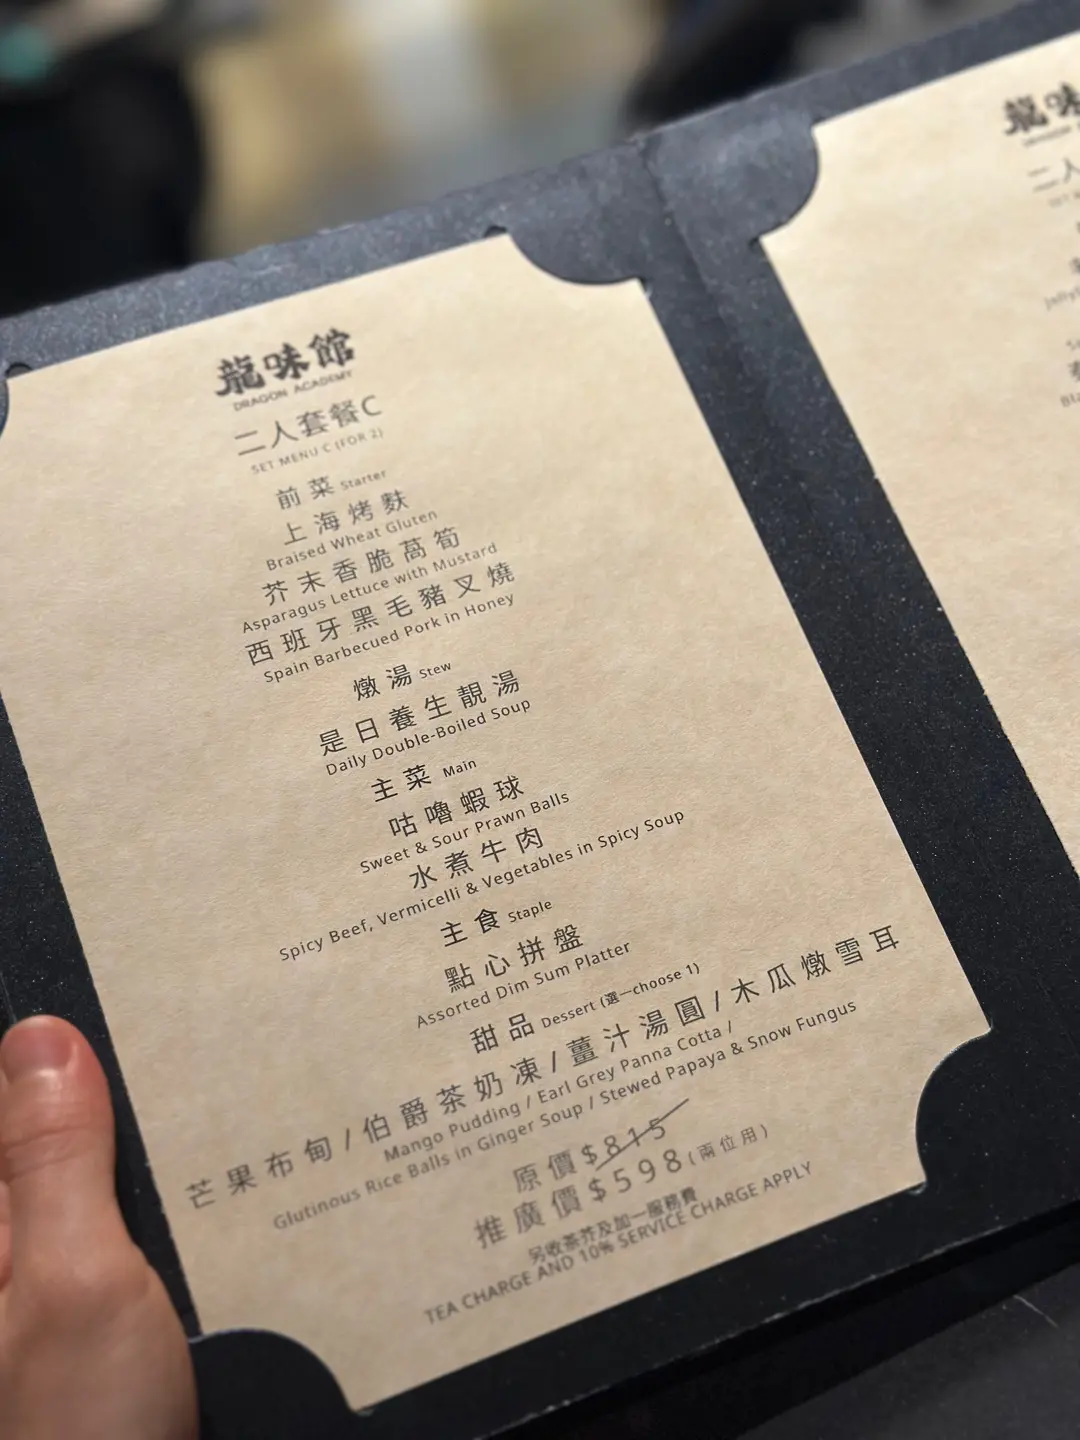 龍味館
DRAGON ACADEMY
二人套餐C
SET MENU C (FOR 2)
前菜 Starter
上海烤麩
Braised Wheat Gluten
芥末香脆萵筍
Asparagus Lettuce with Mustard
西班牙黑毛豬叉燒
Spain Barbecued Pork in Honey
燉湯 Stew
是日養生靚湯
Daily Double-Boiled Soup
主菜 Main
咕嚕蝦球
Sweet & Sour Prawn Balls
水煮牛肉
Spicy Beef, Vermicelli & Vegetables in Spicy Soup
主食 Staple
點心拼盤
Assorted Dim Sum Platter
甜品 Dessert (選一choose 1)
芒果布甸/伯爵茶奶凍/薑汁湯圓/木瓜燉雪耳
Mango Pudding / Earl Grey Panna Cotta /
Glutinous Rice Balls in Ginger Soup / Stewed Papaya & Snow Fungus
原價$815
推廣價$598(兩位用)
另收茶芥及加一服務費
TEA CHARGE AND 10% SERVICE CHARGE APPLY
龍味
二人